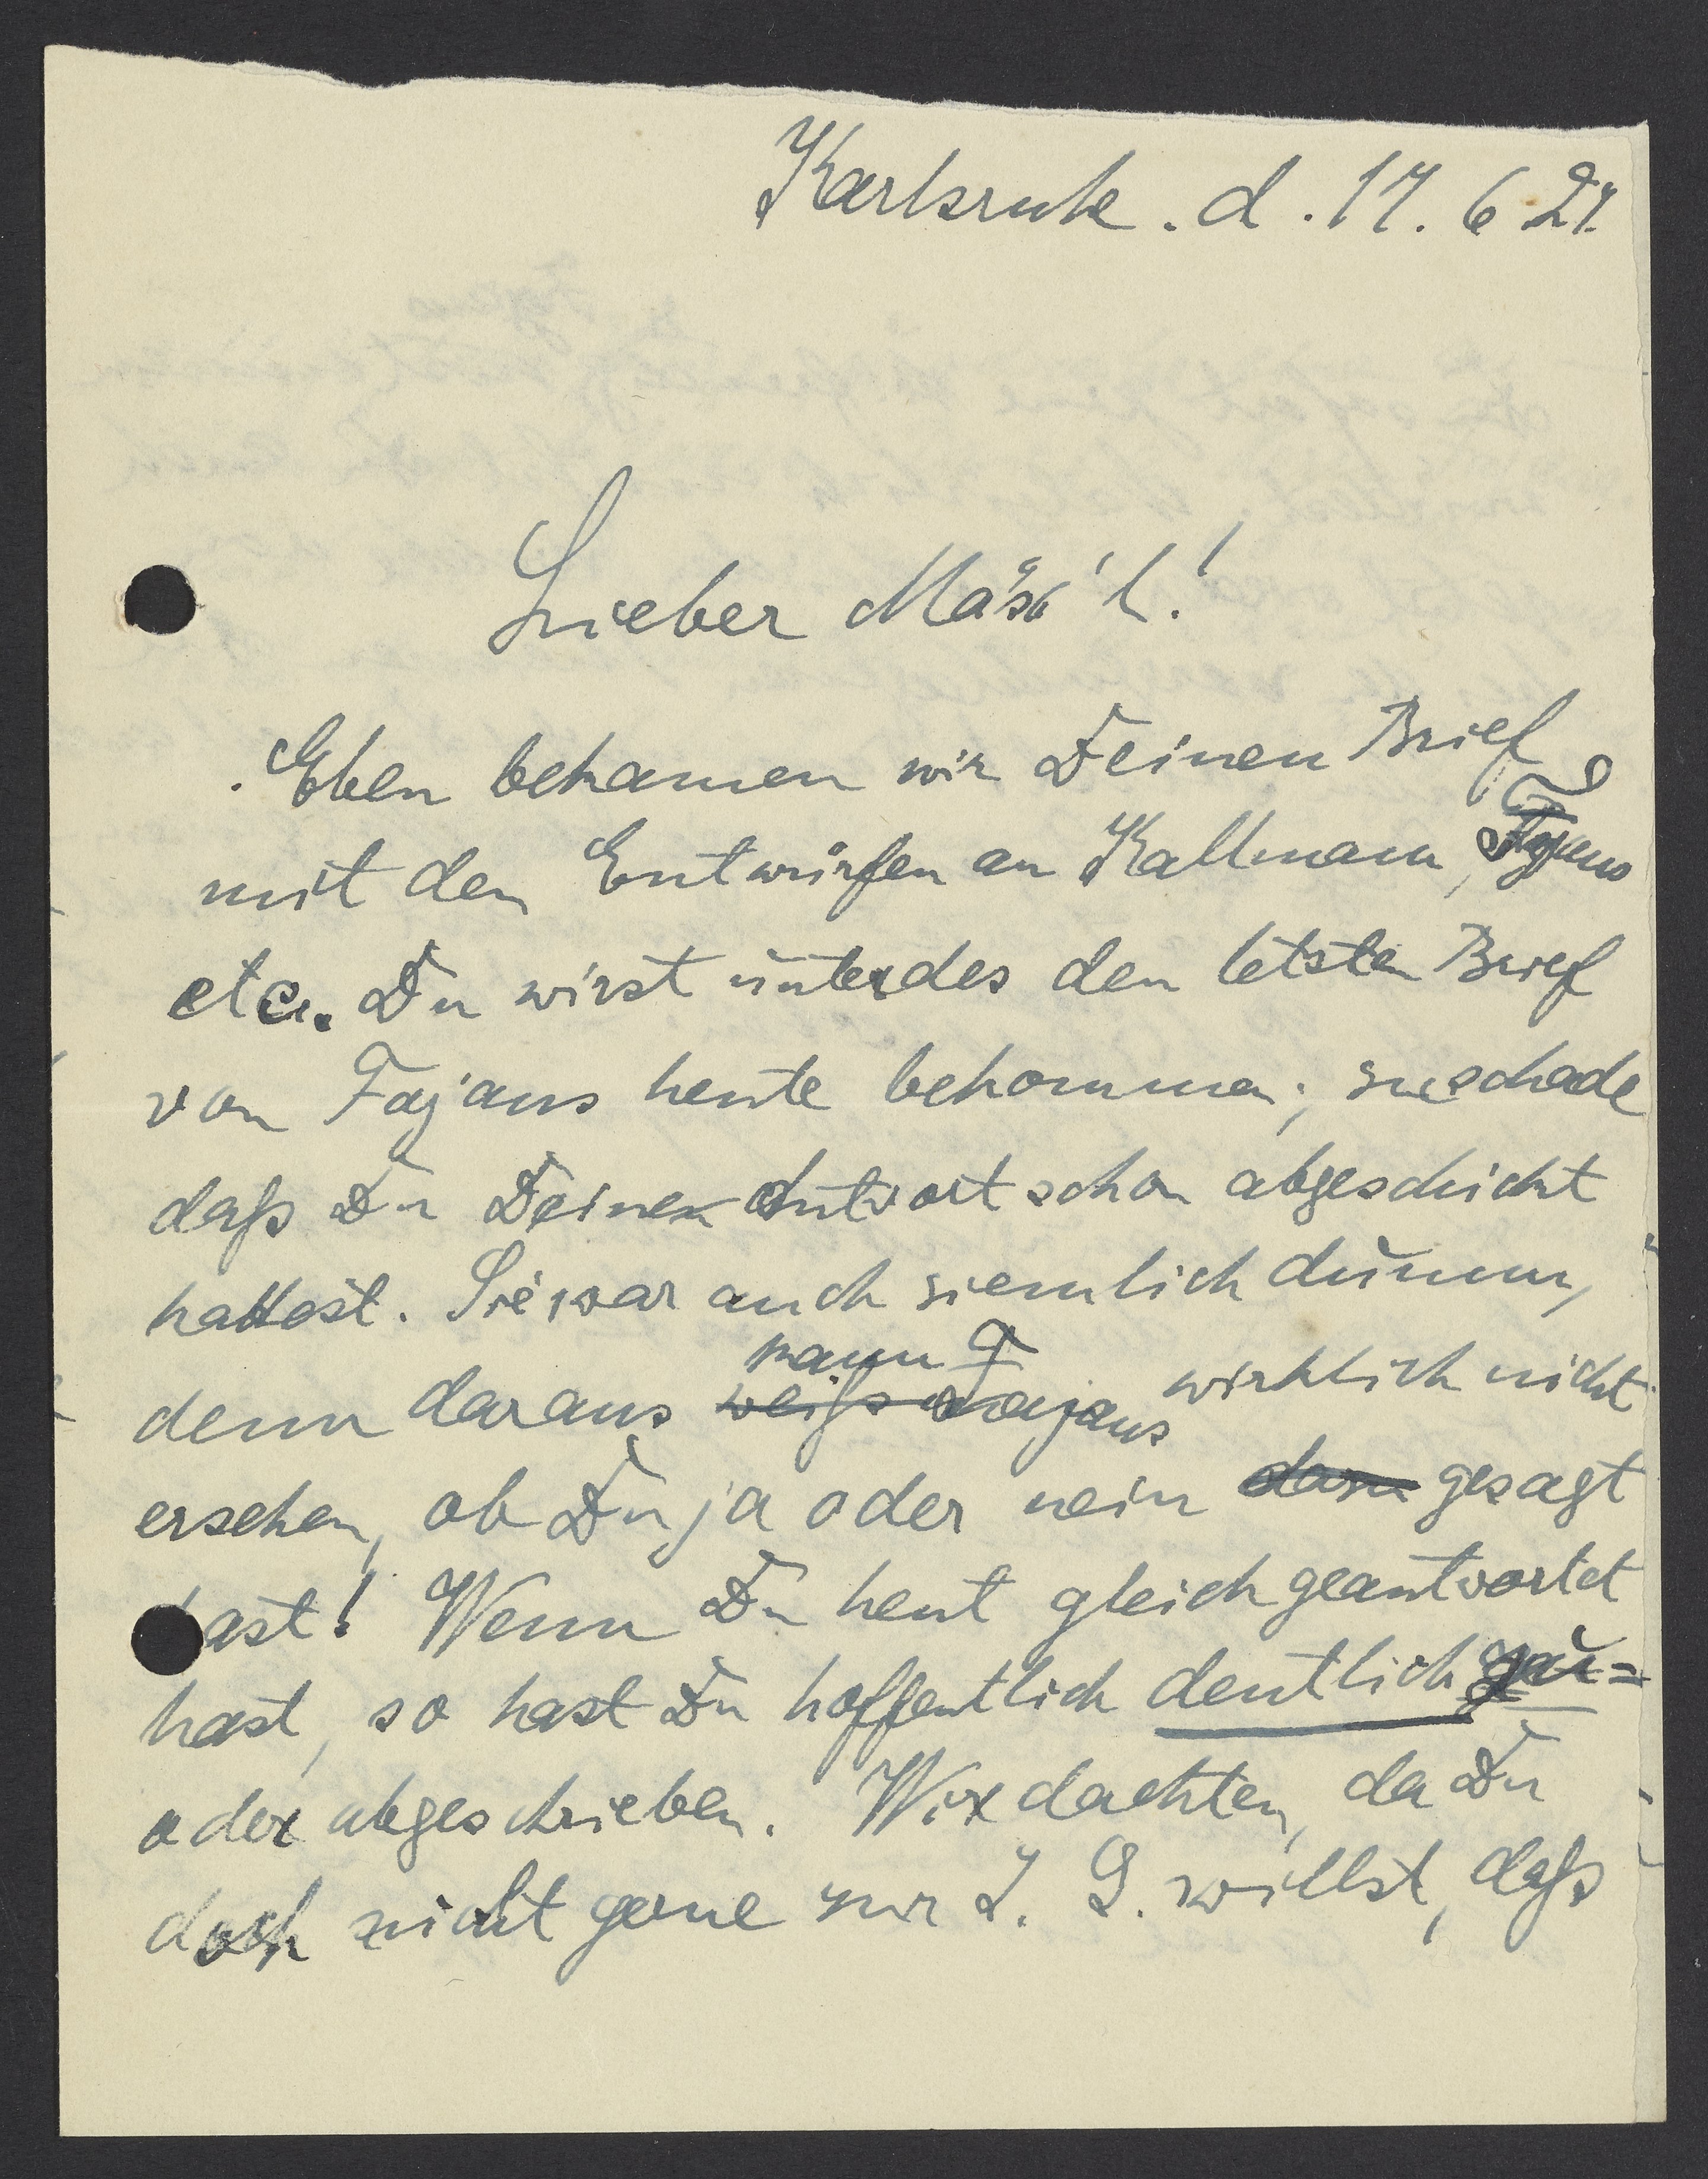 Karlsruhe. d. 17. 6 27.
Lieber Mäsi'l!
Eben bekamen wir Deinen Brief
mit den Entwürfen an Kallmann, Fajans
etc. Du wirst unterdes den letzten Brief
von Fajans heute bekommen; zu schade
daß Du Deine Antwort schon abgeschickt
hattest. Sie war auch ziemlich dumm,
denn daraus weiß kann Fajans wirklich nicht
ersehen, ob Du ja oder nein dazu gesagt
hast! Wenn Du heut gleich geantwortet
hast, so hast Du hoffentlich deutlich zu=
oder abgeschrieben. Wir dachten, da Du
doch nicht gerne zur I. G. willst, daß